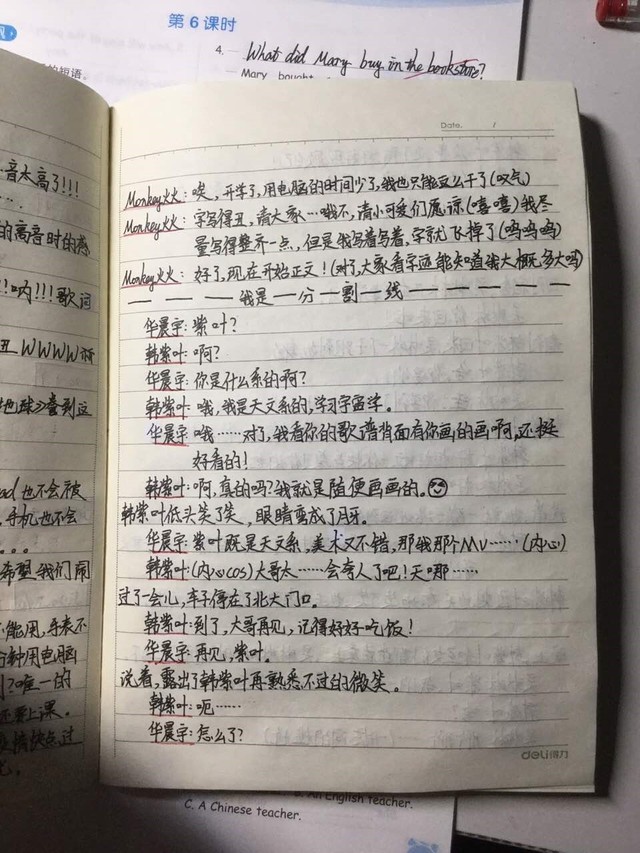 第6课时
4. What did Mary buy in the bookstore?
Mary bought
的短语。
Date. /
音太高了!!!
的高音时的感
吶!!!歌词
丑WWWW
地球》喜到这
ad也不会被
手机也不会
希望我们闹
不能用,手表不
分钟用电脑
?唯一的
还要上课。
疫情快点过
Monkey火火:唉,开学了,用电脑的时间少了,我也只能这么干了(叹气)
Monkey火火:字写得丑,请大家…哦不,请小可爱们愿谅(嘻嘻)我尽
量写得整齐一点,但是我写着写着,字就飞掉了(呜呜呜)
Monkey火火:好了,现在开始正文!(对了,大家看字迹能知道我大概多大吗)
— — — —我是—分—割—线— — — — — —
华晨宇:紫叶?
韩紫叶:啊?
华晨宇:你是什么系的啊?
韩紫叶:哦,我是天文系的,学习宇宙学。
华晨宇:哦……对了,我看你的歌谱背面有你画的画啊,还挺
好看的!
韩紫叶:啊,真的吗?我就是随便画画的。
韩紫叶低头笑了笑,眼睛变成了月牙。
华晨宇:紫叶既是天文系,美术又不错,那我那个MV……(内心)
韩紫叶(内心cos)大哥太……会夸人了吧!天哪……
过了一会儿,车子停在了北大门口。
韩紫叶:到了,大哥再见,记得好好吃饭!
华晨宇:再见,紫叶。
说着,露出了韩紫叶再熟悉不过的微笑。
韩紫叶:呃……
华晨宇:怎么了?
deli得力
B. An English teacher.
C. A Chinese teacher.